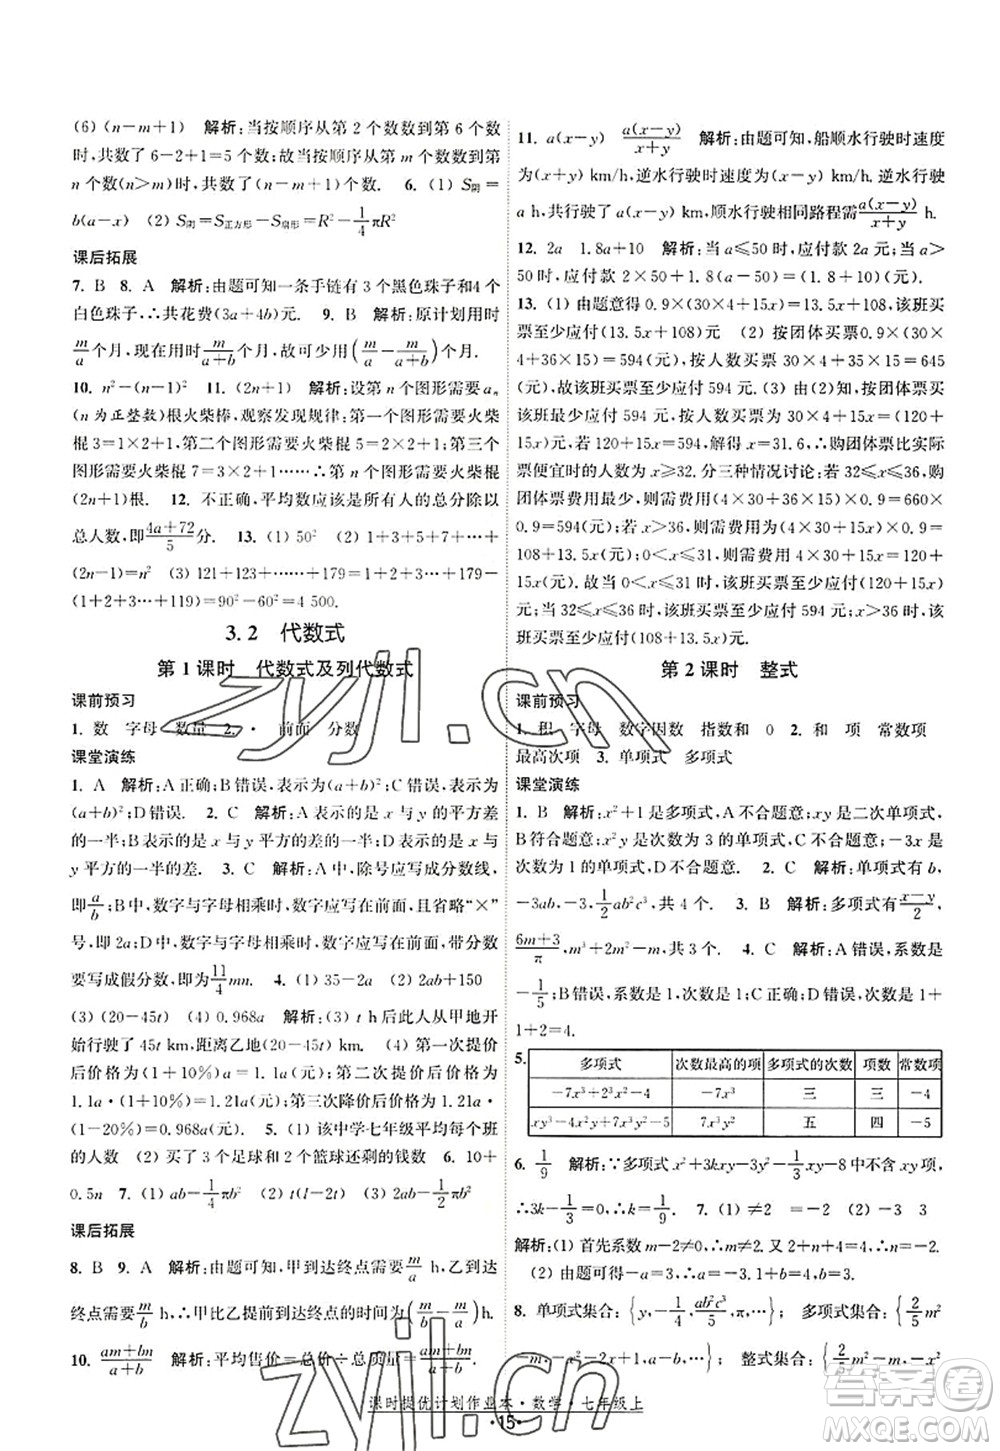 (6) (n－m＋1)　解析：当按顺序从第 2 个数数到第 6 个
时，共数了 6－2＋1＝5 个数；故当按顺序从第 m 个数数到第
n 个数(n＞m)时，共数了(n－m＋1)个数.　6. (1) S阴＝
b(a－x)　(2) S阴＝S正方形－S扇形＝R²－1/4πR²
课后拓展
7. B　8. A　解析：由题可知一条手链有 3 个黑色珠子和4 个
白色珠子，∴共花费(3a＋4b)元.　9. B　解析：原计划用时
m/a个月，现在用时m/(a＋b)个月，∴提前(m/a－m/(a＋b))个月.
10. n²－(n－1)²　11. (2n＋1)　解析：设第 n 个图形需要 aₙ
(n 为正整数)根火柴棒，观察发现规律：第一个图形需要火柴
棍 3＝1×2＋1，第二个图形需要火柴棍 5＝2×2＋1；第三个
图形需要火柴棍 7＝3×2＋1……∴第 n 个图形需要火柴棍
(2n＋1)根.　12. 不正确，平均数应该是所有人的总分除以
总人数，即(4a＋72)/5分.　13. (1) 50²　(2) 1＋3＋5＋7＋…＋
(2n－1)＝n²　(3) 121＋123＋…＋179＝(1＋3＋…＋179)－
(1＋2＋3＋…＋119)＝90²－60²＝4 500.
3. 2　代数式
第 1 课时　代数式及列代数式
课前预习
1. 数　字母　数量　2. ·　前面　分数
课堂演练
1. A　解析：A 正确；B 错误，表示的是(a＋b)²；C 错误，表
示的是(a＋b)²；D 错误.　2. C　解析：A 表示的是 x 与 y 的平方差
的一半；B 表示的是 x 与 y 平方的差的一半；D 表示的是 x 与
y 平方的一半的差.　3. C　解析：A 中，除号应写成分数线，
即a/b；B 中，数字与字母相乘时，数字应写在前面，且省略“×”
号，即 2a；D 中，数字与字母相乘时，数字应写在前面，带分数
要写成假分数，即为11/4mn.　4. (1) 35－2a　(2) 2ab＋150
(3) (20－45t)　(4) 0.968a　解析：(3) t h后此人从甲地开
始行驶了 45t km，距离乙地(20－45t) km.　(4) 第一次提价
后价格为(1＋10%)a＝1.1a(元)；第二次提价后价格为
1.1a·(1＋10%)＝1.21a(元)；第三次降价后价格为 1.21a·
(1－10%)＝0.968a(元).　5. (1) 该中学七年级平均每个班
的人数　(2) 买了 3 个足球和 2 个篮球还剩的钱数　6. 10＋
0.5n　7. (1) ab－1/4πb²　(2) t(l－2t)　(3) 2ab－1/2πb²
课后拓展
8. B　9. A　解析：由题可知，甲到达终点需要m/a h，乙到达
终点需要m/b h，∴甲比乙提前到达终点的时间为(m/b－m/a)h.
10. (am＋bn)/(a＋b)　解析：平均售价＝总价÷总质量＝(am＋bn)/(a＋b).
11. a(x－y)　a(x－y)/(x＋y)　解析：由题可知，船顺水行驶时速度
为(x＋y) km/h，逆水行驶时速度为(x－y) km/h，逆水行驶
a h，共行驶了 a(x－y) km，顺水行驶相同路程需a(x－y)/(x＋y) h.
12. 2a　1.8a＋10　解析：当 a≤50 时，应付款 2a 元；当 a＞
50 时，应付款 50×2＋1.8(a－50)＝(1.8a＋10)(元).
13. (1) 由题意得 0.9×(30×4＋15x)＝13.5x＋108，该班买
票至少应付(13.5x＋108)元　(2) 按团体买票0.9×(30×
4＋36×15)＝594(元)，按人数买票 30×4＋35×15＝645
(元)，故该班买票至少应付 594 元.　(3) 由(2)知，按团体票买
该班最少付 594 元，按人数买票为 30×4＋15x＝(120＋
15x)元，若 120＋15x＝594，解得 x＝31.6，∴购团体票比实际
票便宜时的人数为 32.　分三种情况讨论：若 32≤x≤36，按
购团体票买票应为(30×4＋36×15)×0.9＝660×
0.9＝594(元)；若 x＞36，则应付款 0.9×(30×4＋15x)＝13.5x＋
108(元)；若 0≤x＜32，则应付款(120＋15x)元，综上所述，当
32≤x≤36 时，该班买票至少应付 594 元；当 x＞36 时，该班
买票至少应付(13.5x＋108)元；当 0≤x＜32 时，该班买票至少应付(120＋15x)元.
第 2 课时　整式
课前预习
1. 积　字母　数字因数　指数和　0　2. 和　项　常数项
最高次项　3. 单项式　多项式
课堂演练
1. B　解析：x²＋1 是多项式，A 不合题意；xy 是二次单项式，
B符合题意；x²y 是次数为 3 的单项式，C 不合题意；－3x 是
次数为 1 的单项式，D 不合题意.　2. C　解析：单项式有 b，
－3ab，－5，1/2ab²c³，共 4 个.　3. B　解析：多项式有(x－y)/2，
(6m＋3)/π，m²＋2m²－m，共 3 个.　4. C　解析：A 错误，系数是
－1/5；B 错误，系数是 1，次数是 1；D 错误，次数是 1＋
1＋2＝4.
5. 多项式　次数最高的项　多项式的次数　项数　常数项
－7x³＋2³x²－4　－7x³　三　三　－4
xy³－4x²＋7x³y²－5　7x³y²　五　四　－5
6. 1/9　解析：∵多项式 x²＋3kxy－y²－1/3xy－8 中不含 xy 项，
∴3k－1/3＝0，∴k＝1/9.　7. (1) ＝2　＝－2　(2) ＝－2
解析：(1) 首先系数 m－2＝0，∴m＝2，又 2＋n＋2＝2，∴n＝－2.
(2) 由题可得－a＝2，∴a＝－2.
8. 单项式集合：{y，－1/4x，ab²c³/3，π，…}；　多项式集合：{2/5m²
－m，－m²＋1，…}；　整式集合：{2/5m²－m，－x，
课时提优计划作业本·数学·七年级上
·15·
答案圈
zyjl.cn
zyjl.cn